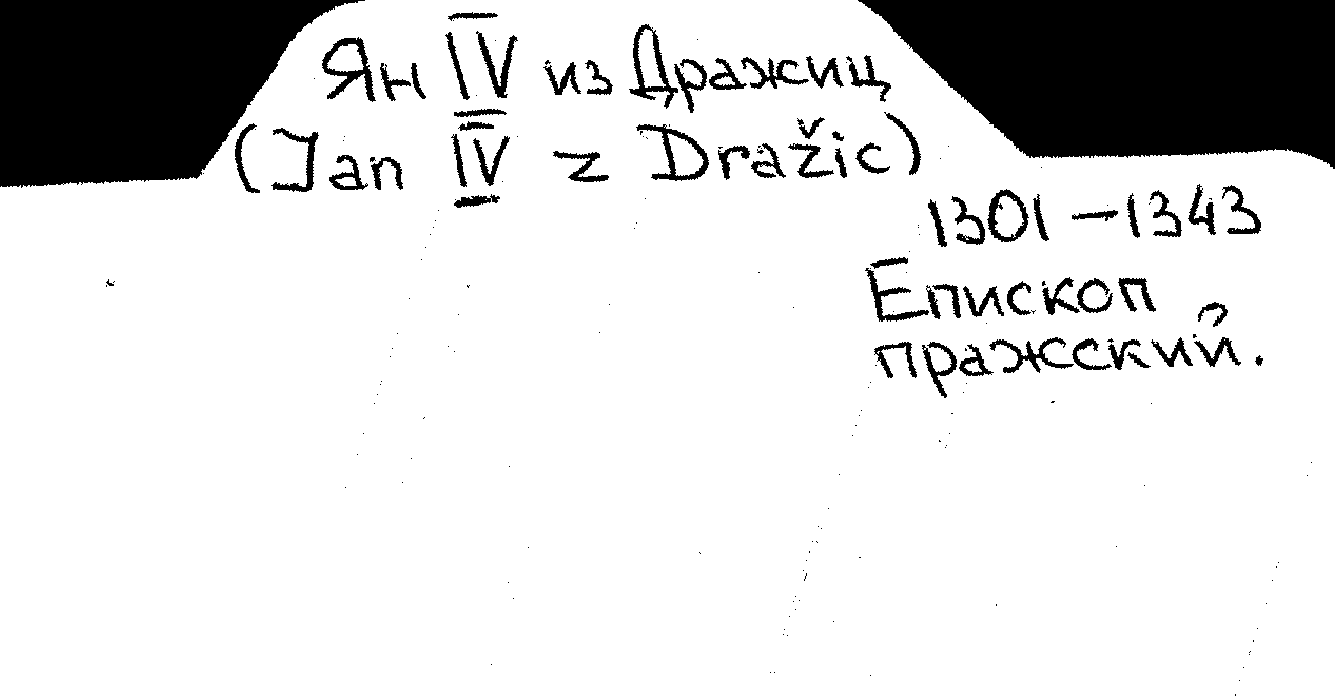 Ян IV из Дражиц
(Jan IV z Dražic)
1301 – 1343
Епископ
пражский.